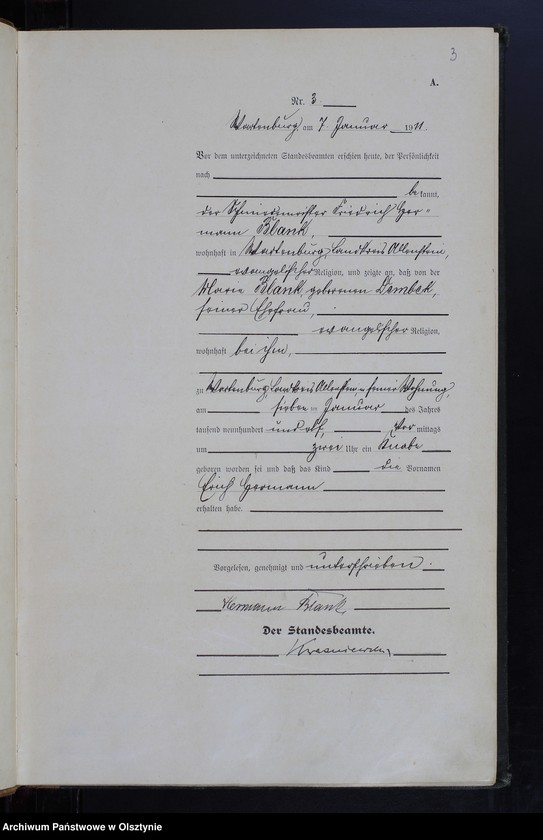 3
A.
Nr. 3
Wartenburg am 7. Januar 1911.
Vor dem unterzeichneten Standesbeamten erschien heute, der Persönlichkeit
nach
bekannt,
der Schmiedemeister Friedrich Her-
mann Blank,
wohnhaft in Wartenburg, Landkreis Allenstein,
evangelischer Religion, und zeigte an, daß von der
Marie Blank, geborenen Dembek,
seiner Ehefrau,
evangelischer Religion,
wohnhaft bei ihm,
zu Wartenburg, Landkreis Allenstein, in seiner Wohnung,
am sieben ten Januar des Jahres
tausend neunhundert und elf, Vor mittags
um zwei Uhr ein Knabe
geboren worden sei und daß das Kind die Vornamen
Erich Hermann
erhalten habe.
Vorgelesen, genehmigt und unterschrieben.
Hermann Blank
Der Standesbeamte.
Archiwum Państwowe w Olsztynie